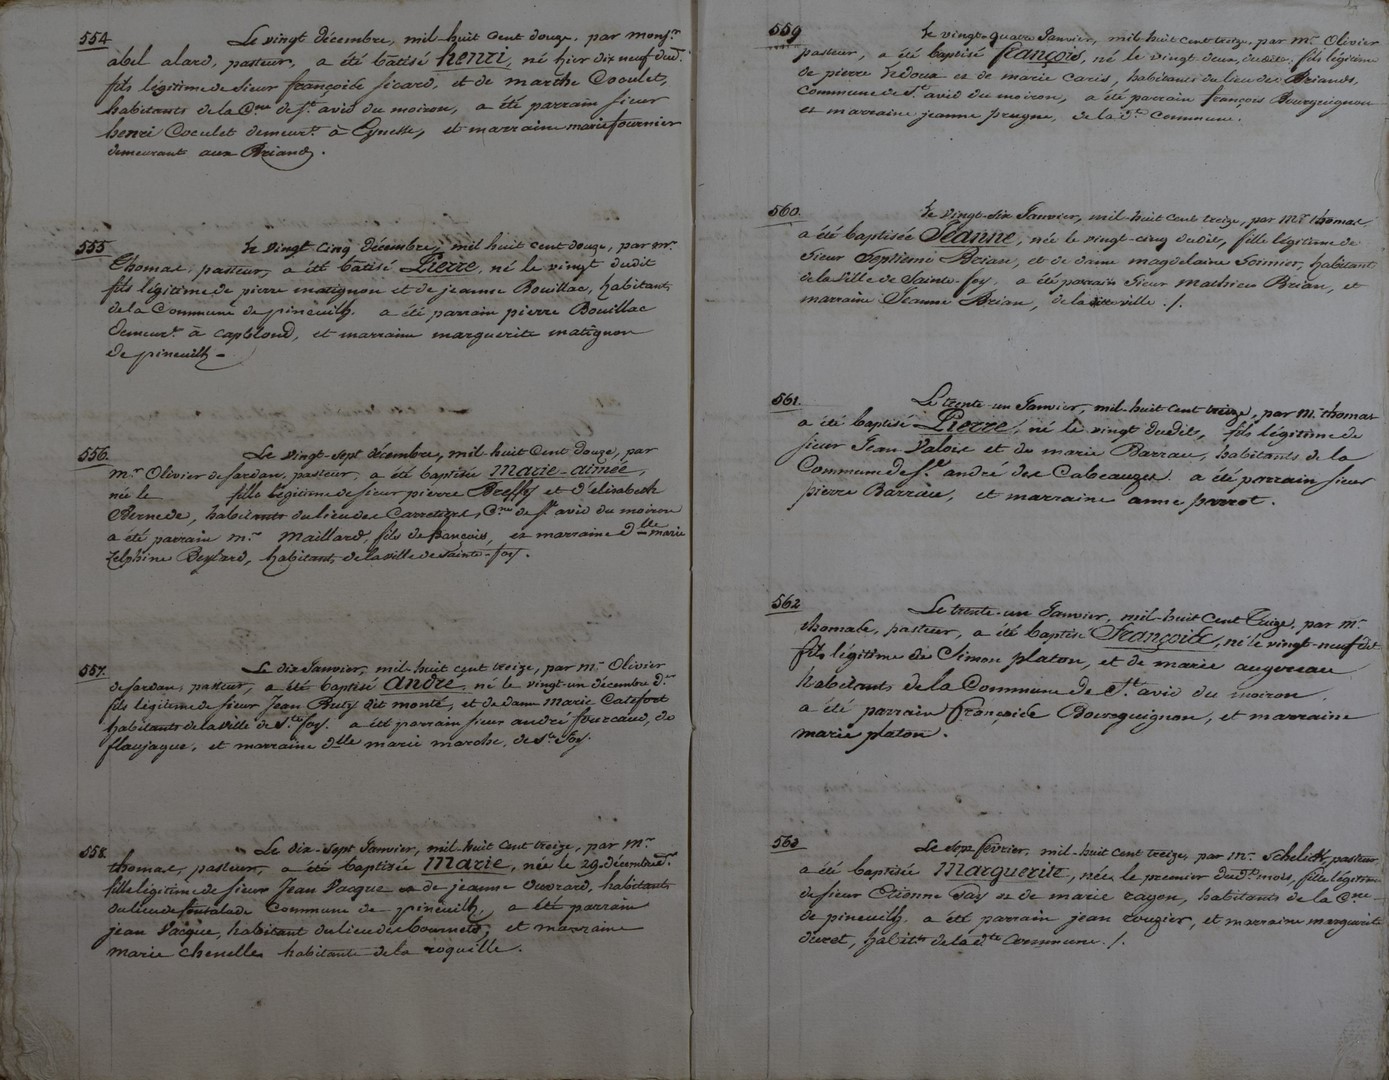 554
Le vingt décembre, mil-huit cent douze, par monsr.
abel alard, pasteur, a été batisé henri, né hier dix neuf dud.
fils légitime de sieur françois sicard, et de marthe Coculet,
habitants de la Cne de St. avid du moiron, a été parrain sieur
henri Coculet demeurt. à Eynesse, et marraine marie fournier
demeurant aux Briands.
555
Le vingt cinq décembre, mil huit cent douze, par mr.
Thomas, pasteur, a été batisé Pierre, né le vingt dudit
fils légitime de pierre matignon et de jeanne Bouillac, habitants
de la Commune de pineuilh, a été parrain pierre Bouillac
demeurt. à capblond, et marraine marguerite matignon
de pineuilh
556
Le vingt-sept décembre, mil-huit Cent douze, par
mr. Olivier de sardan, pasteur, a été baptisée Marie-aimée,
née le fille légitime de sieur pierre et d'elizabeth
habitants du lieu des Carretiers, Cne de St. avid du moiron
a été parrain mr. Maillard, fils de françois, et marraine dlle marie
Zelphine habitants de la ville de Sainte-foy.
557.
Le dix Janvier, mil-huit cent treize, par mr. Olivier
de sardan, pasteur, a été baptisé andré, né le vingt-un décembre dr.
fils légitime de sieur Jean dit monté, et de dame Marie Calefort
habitants de la ville de Ste. foy. a été parrain sieur andré fourcaud, de
flaujague, et marraine dlle marie marche, de Ste. foy.
558.
Le dix-sept Janvier, mil-huit cent treize, par mr.
thomas, pasteur, a été baptisée Marie, née le 29. décembre dr.
fille légitime de sieur Jean Jacque et de jeanne ouvrard, habitants
du lieu de fonsalade Commune de pineuilh, a été parrain
jean Jacque, habitant du lieu des bournets, et marraine
marie chenelle habitante de la roquille.
559
Le vingt-quatre Janvier, mil-huit cent treize, par mr. Olivier
pasteur, a été baptisé françois, né le vingt-deux dudit, fils légitime
de pierre et de marie caris, habitants du lieu des Briands,
Commune de St. avid du moiron, a été parrain françois Bourguignon
et marraine jeanne prugne, de la dte. commune.
560.
Le vingt-six Janvier, mil-huit cent treize, par Mr. thomas
a été baptisée Jeanne, née le vingt-cinq dudit, fille légitime de
sieur Septième Brian, et de dame magdelaine Sonnier, habitants
de la ville de Sainte-foy, a été parrain sieur mathieu Brian, et
marraine Jeanne Brian, de la dite ville ./.
561.
Le trente-un Janvier, mil-huit cent treize, par mr. thomas
a été baptisé Pierre, né le vingt dudit, fils légitime de
sieur Jean Valois et de marie Barrau, habitants de la
Commune de St. andré des Cabeauzes. a été parrain sieur
pierre Barrau, et marraine anne perrot.
562
Le trente-un Janvier, mil-huit cent treize, par mr.
thomas, pasteur, a été baptisé François, né le vingt-neuf dit
fils légitime de Simon platon, et de marie augereau
habitants de la Commune de St. avid du moiron.
a été parrain françois Bourguignon, et marraine
marie platon.
563
Le sept février, mil-huit cent treize, par mr. Schelitk, pasteur,
a été baptisé Marguerite, née le premier dudt. mois, fille légitime
de sieur Etienne et de marie rayon, habitants de la Cne.
de pineuilh, a été parrain jean rougier, et marraine marguerite
duret, habitts de la dte Commune ./.